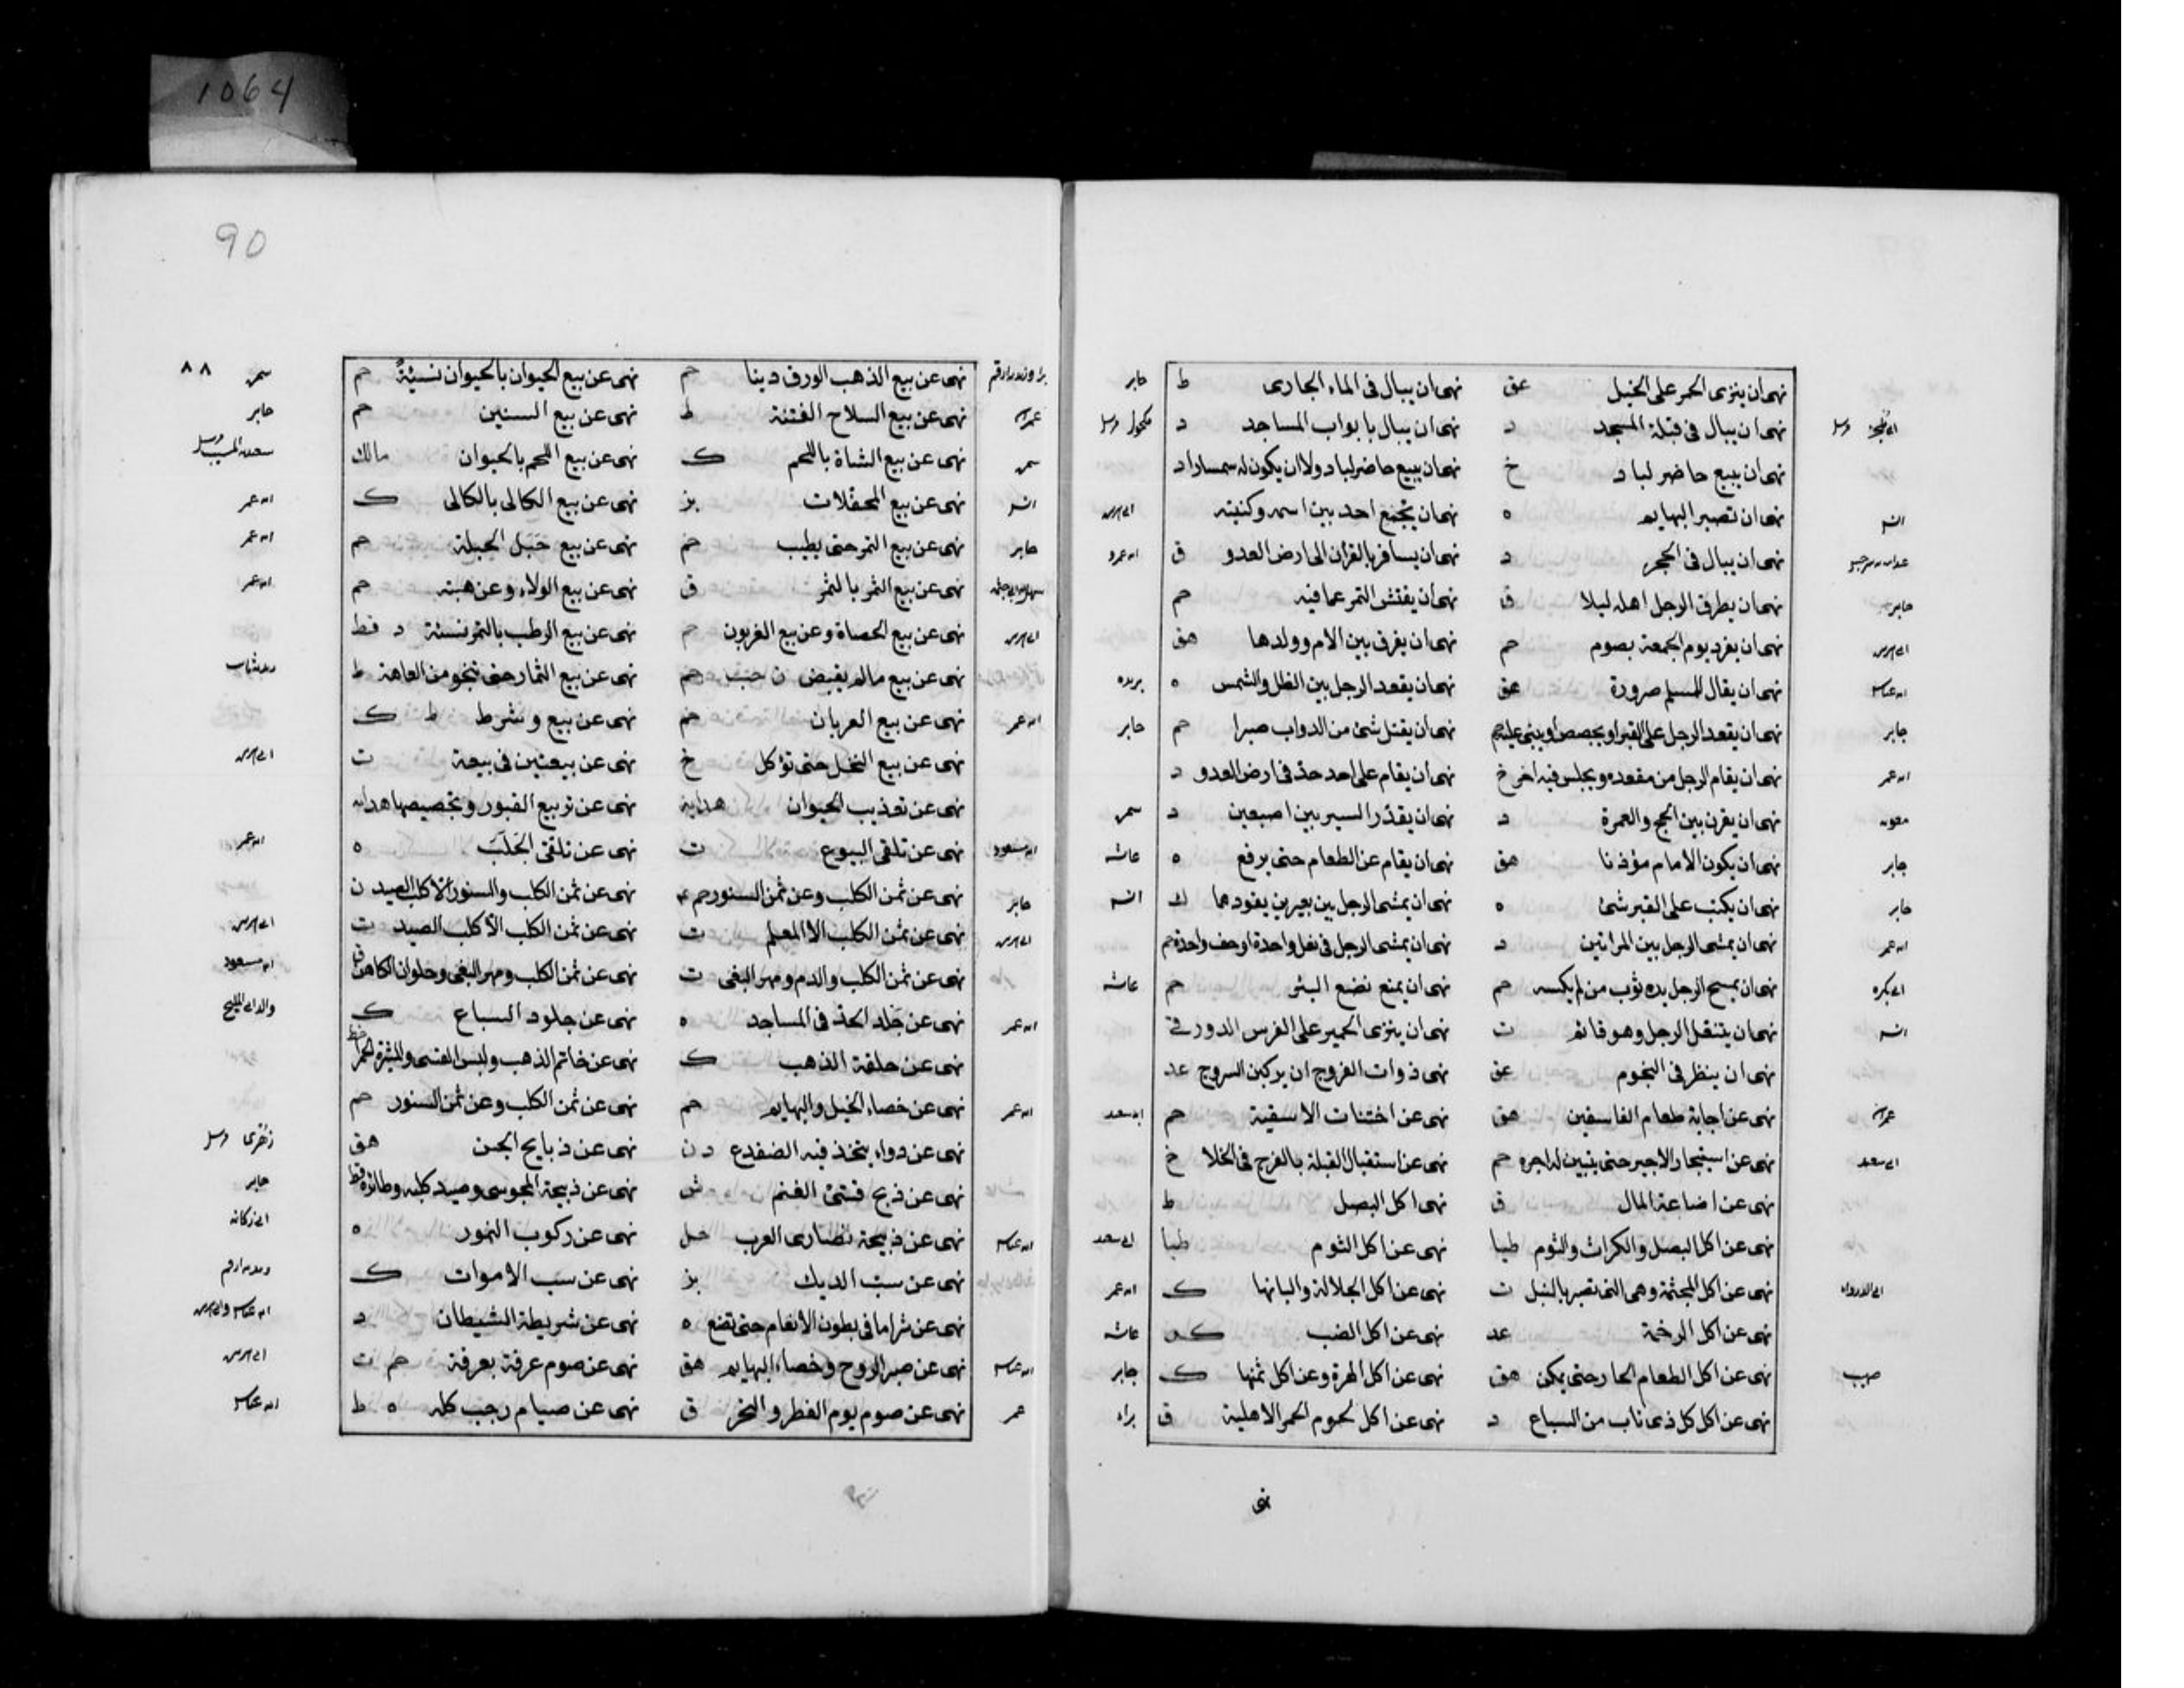 1064
90
٨٨
نهى ان ينزى الحمر على الخيل عق نهى ان يبال فى الماء الجارى ط جابر
نهى ان يبال فى قبلة المسجد د نهى ان يبال بابواب المساجد د مكحول مرسل
نهى ان يبيع حاضر لباد خ نهى ان يبيع حاضر لباد ولا ان يكون له سمسارا د
انس نهى ان تصبر البهايم ه نهى ان يجمع احد بين اسمه وكنيته
نهى ان يبال فى الحجر د نهى ان يسافر بالقران الى ارض العدو ق
جابر نهى ان يطرق الرجل اهله ليلا ق نهى ان يفتش التمر عما فيه حم
نهى ان يفرد يوم الجمعة بصوم حم نهى ان يفرق بين الام وولدها هق
نهى ان يقال للمسلم صرورة عق نهى ان يقعد الرجل بين الظل والشمس ه بريده
جابر نهى ان يقعد الرجل على القبر او يجصص او يبنى عليه حم نهى ان يقتل شئ من الدواب صبرا حم جابر
نهى ان يقام الرجل من مقعده ويجلس فيه اخر خ نهى ان يقام على احد حد فى ارض العدو د
نهى ان يقرن بين الحج والعمرة د نهى ان يقد السير بين اصبعين د
جابر نهى ان يكون الامام مؤذنا هق نهى ان يقام عن الطعام حتى يرفع ه
جابر نهى ان يكتب على القبر شئ ه نهى ان يمشى الرجل بين بعيرين يقودهما ك انس
نهى ان يمشى الرجل بين المراتين د نهى ان يمشى الرجل فى نعل واحدة او خف واحدة حم
نهى ان يمسح الرجل يده بثوب من لم يكسه حم نهى ان يمنع نقع البئر حم
انس نهى ان يتنعل الرجل وهو قائم ت نهى ان ينزى الحمير على الفرس
نهى ان ينظر فى النجوم عق نهى ذوات الفروج ان يركبن السروج عد
نهى عن اجابة طعام الفاسقين هق نهى عن اختنات الاسقية حم
نهى عن استيجار الاجير حتى يتبين له اجره حم نهى عن استقبال القبلة بالفرج فى الخلا خ
نهى عن اضاعة المال ق نهى اكل البصل ط
نهى عن اكل البصل والكراث والثوم طيا نهى عن اكل الثوم طيا
نهى عن اكل المجثمة وهى التى تصبر بالنبل ت نهى عن اكل الجلالة والبانها ك
نهى عن اكل الرخمة عد نهى عن اكل الضب
نهى عن اكل الطعام الحار حتى يمكن هق نهى عن اكل الهرة وعن اكل ثمنها ك جابر
نهى عن اكل كل ذى ناب من السباع د نهى عن اكل لحوم الحمر الاهلية ق براء
نهى
نهى عن بيع الذهب الورق دينا حم نهى عن بيع الحيوان بالحيوان نسيئة حم
نهى عن بيع السلاح الفتنة ط نهى عن بيع السنين حم جابر
نهى عن بيع الشاة باللحم ك نهى عن بيع اللحم بالحيوان مالك
نهى عن بيع المحفلات بز نهى عن بيع الكالى بالكالى ك
جابر نهى عن بيع التمر حتى يطيب حم نهى عن بيع حبل الحبلة حم
نهى عن بيع الثمر بالتمر ق نهى عن بيع الولاء وعن هبته حم
نهى عن بيع الحصاة وعن بيع الغرر نهى عن بيع الرطب بالتمر نسئة د قط
نهى عن بيع مالم يقبض نهى عن بيع الثمار حتى تنجو من العاهة ط
نهى عن بيع العربان حم نهى عن بيع وشرط ط ك
نهى عن بيع النخل حتى تؤكل خ نهى عن بيعتين فى بيعة ت
نهى عن تعذيب الحيوان هداية نهى عن تربيع القبور وتجصيصها هدايه
نهى عن تلقى البيوع ت نهى عن تلقى الجلب ه
جابر نهى عن ثمن الكلب وعن ثمن السنور حم نهى عن ثمن الكلب والسنور الا كلب الصيد ن
نهى عن ثمن الكلب الا المعلم ت نهى عن ثمن الكلب الا كلب الصيد ت
نهى عن ثمن الكلب والدم ومهر البغى ت نهى عن ثمن الكلب ومهر البغى وحلوان الكاهن ق
نهى عن جلد الحد فى المساجد ه نهى عن جلود السباع ك
نهى عن حلقة الذهب ك نهى عن خاتم الذهب ولبس القسى والميثرة الحمر
نهى عن خصاء الخيل والبهايم حم نهى عن ثمن الكلب وعن ثمن السنور حم
نهى عن دواء يتخذ فيه الضفدع د ن نهى عن ذبايح الجن هق زهرى مرسل
نهى عن ذبح الغنم نهى عن ذبيحة المجوسى وصيد كلبه وطائره قط جابر
نهى عن ذبيحة نصارى العرب حل نهى عن ركوب النمور ه
نهى عن سب الديك بز نهى عن سب الاموات ك
نهى عن شراما فى بطون الانعام حتى تضع ه نهى عن شريطة الشيطان د
نهى عن صبر الروح وخصاء البهايم هق نهى عن صوم عرفة بعرفة حم ت
عمر نهى عن صوم يوم الفطر والنحر ق نهى عن صيام رجب كله ه ط